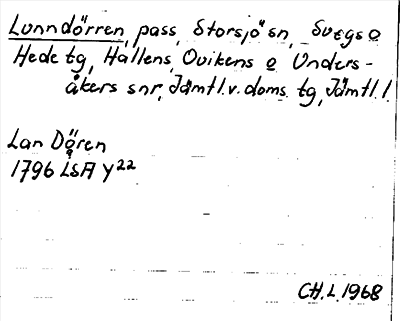 Lunndörren, pass, Storsjö sn, Svegs o
Hede tg, Hallens, Ovikens o Unders-
åkers snr, Jämtl. v. doms. tg, Jämtl. l.
Lan Dören
1796 LSA Y22
CH. L. 1968